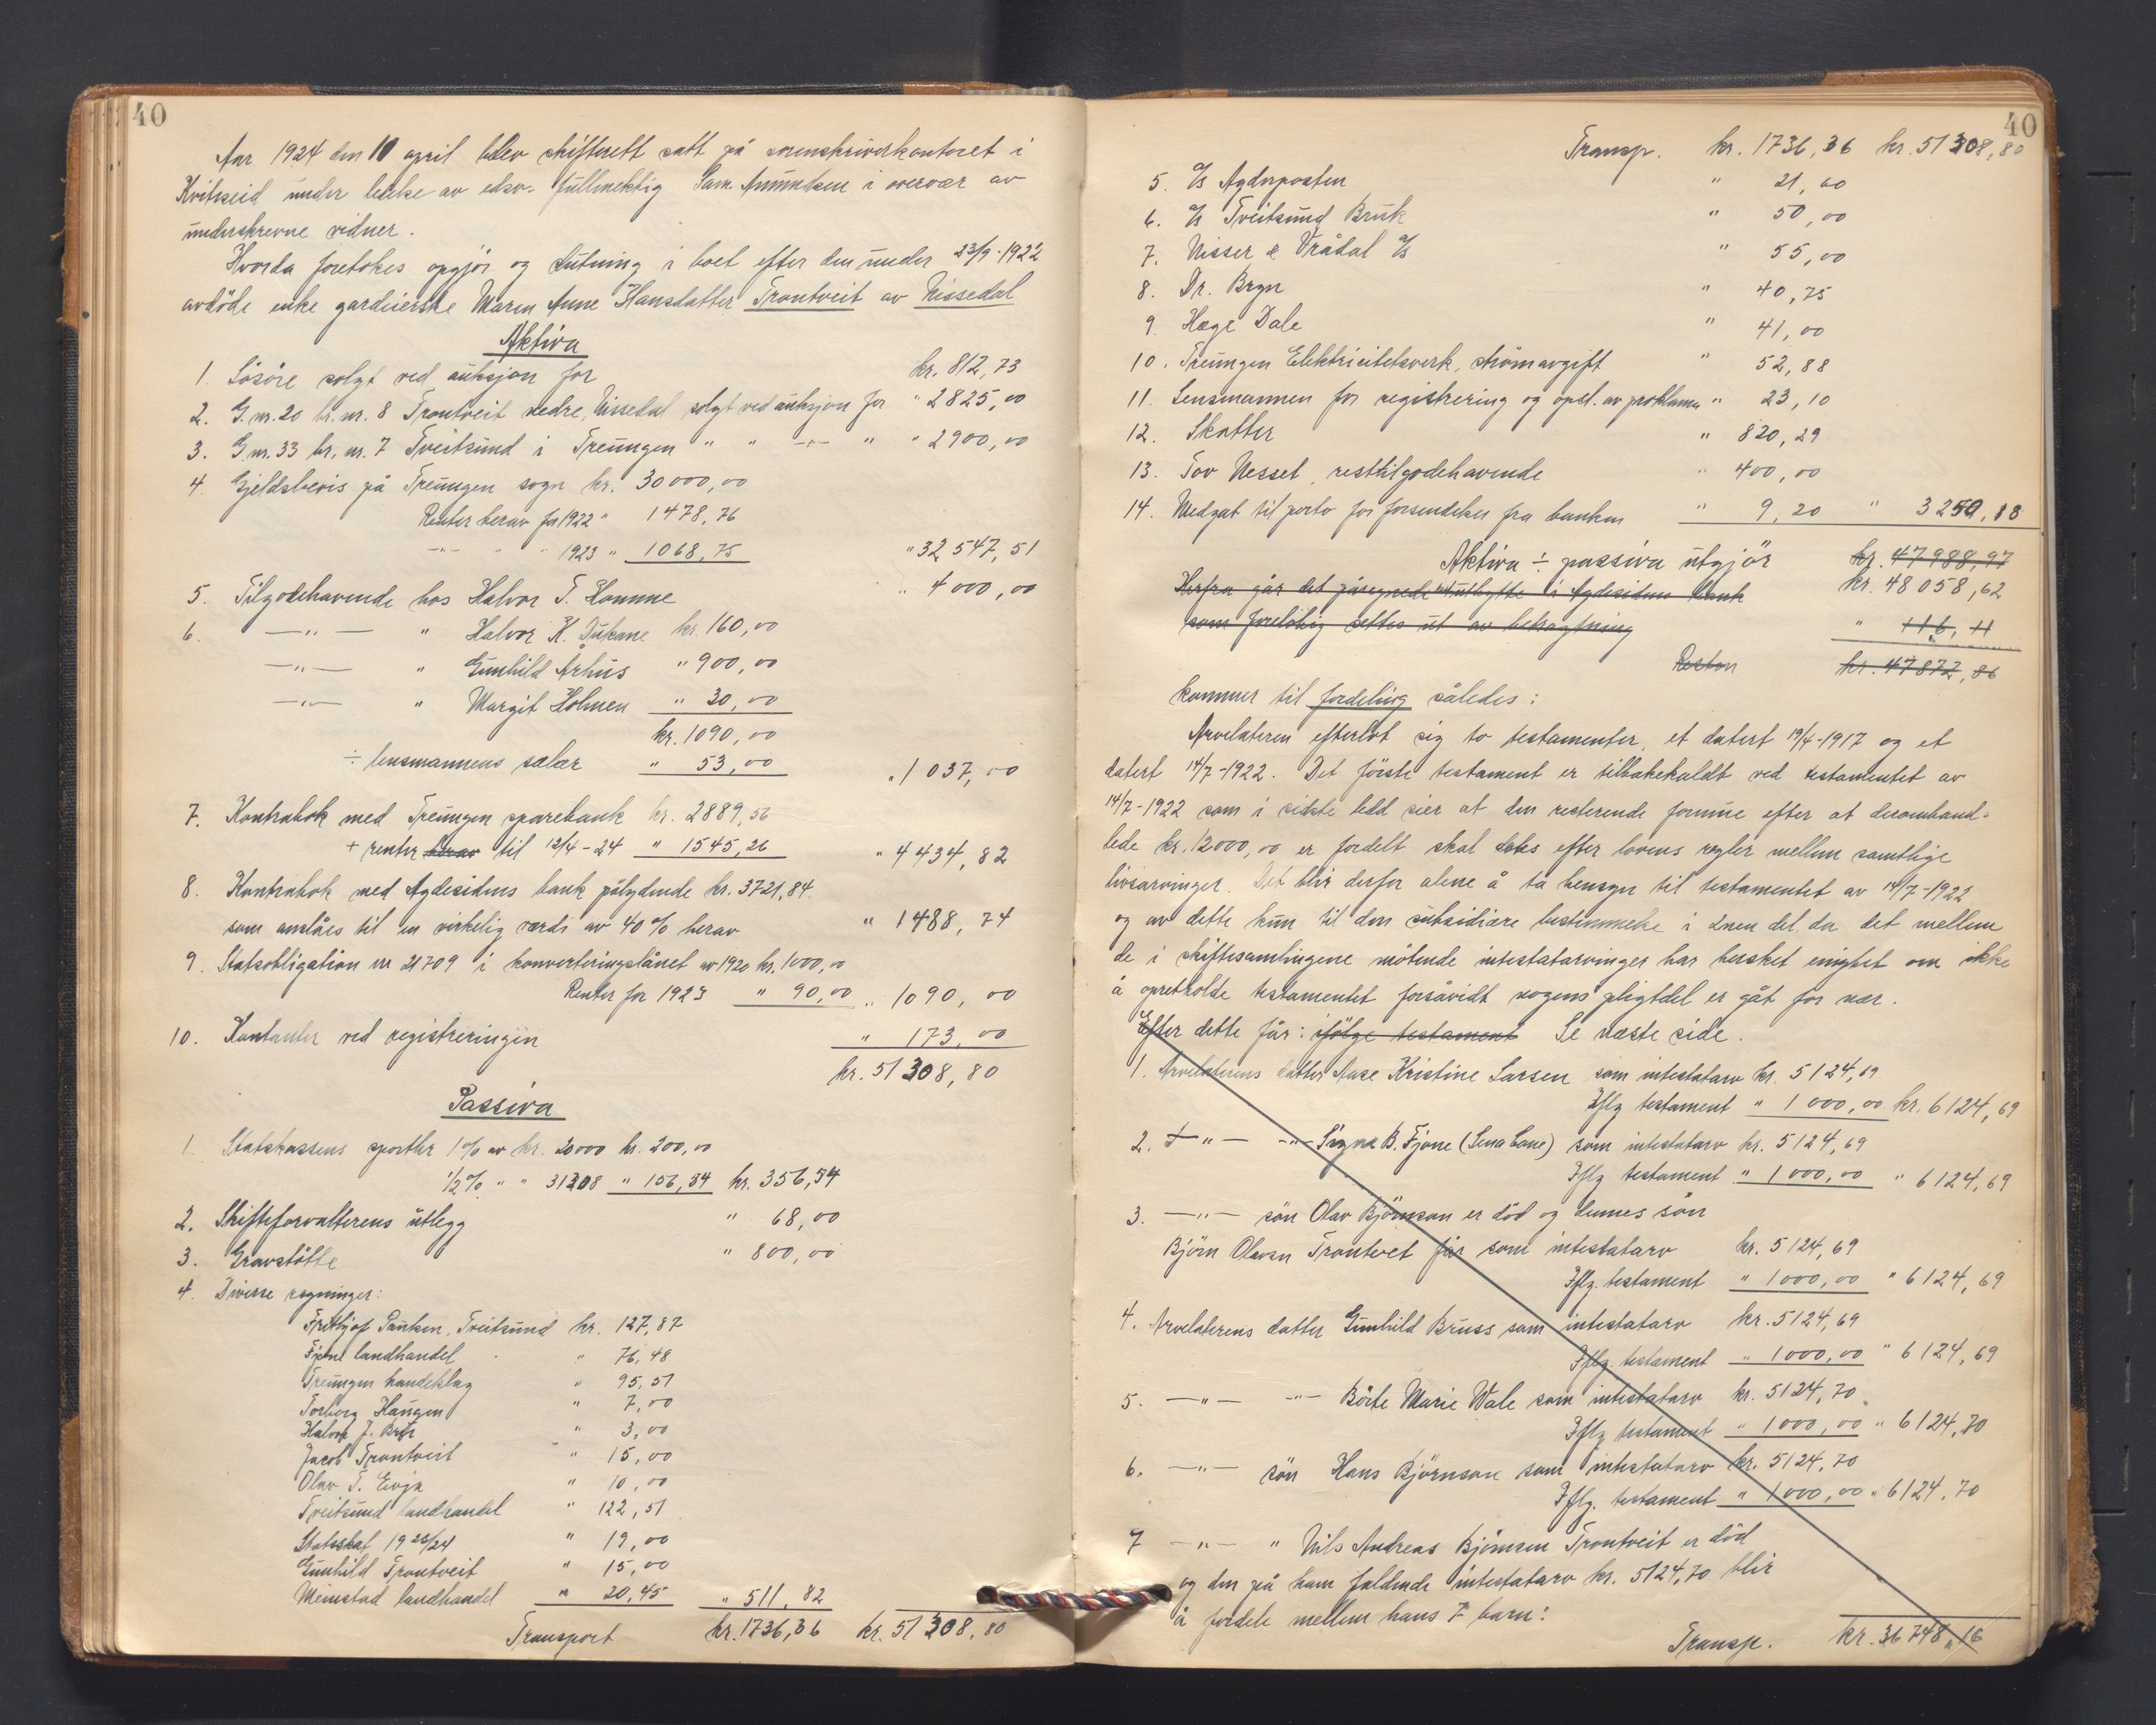 40
Aar 1924 den 10 april blev skifterett satt på sorenskriverkontoret i
Kviteseid under ledelse av edsv. fullmektig Sam. Amundsen i overvær av
underskrevne vidner.
Hvorda foretokes opgjör og slutning i boet efter den under 23/9-1922
avdöde enke gardeierske Maren Anne Hansdatter Trontveit av Nissedal
Aktiva
1. Lösöre solgt ved auksjon for kr. 812,73
2. G.nr. 20 br.nr. 8 Trontveit nedre, Nissedal solgt ved auksjon for " 2825,00
3. G.nr. 33 br.nr. 7 Tveitsund i Treungen " " -"- " " 2900,00
4. Gjeldsbevis på Treungen sogn kr. 30000,00
Renter herav for 1922 " 1478,76
-"- " " 1923 " 1068,75 " 32547,51
5. Tilgodehavende hos Halvor T. Homme " 4000,00
6. -"- " Halvor K. Dukane kr. 160,00
-"- " Gunhild Århus " 900,00
-"- " Margit Holmen " 30,00
kr. 1090,00
÷ lensmannens salær " 53,00 " 1037,00
7. Kontrabok med Treungen sparebank kr. 2889,56
+ renter herav til 12/4-24 " 1545,26 " 4434,82
8. Kontrabok med Agdesidens bank pålydende kr. 3721,84
som anslåes til en virkelig værdi av 40% herav " 1488,74
9. Statsobligation nr 21709 i konverteringslånet av 1920 kr. 1000,00
Renter for 1923 " 90,00 " 1090,00
10. Kontanter ved registreringen " 173,00
kr. 51308,80
Passiva
1. Statskassens sportler 1% av kr. 20000 kr. 200,00
1/2% " " 31308 " 156,54 kr. 356,54
2. Skifteforvalterens utlegg " 68,00
3. Gravstötte " 800,00
4. Diverse regninger:
Frithjof Paulsen, Tveitsund kr. 127,87
Fjone landhandel " 76,48
Treungen handelslag " 95,51
Torborg Haugen " 7,00
Halvor J. " 3,00
Jacob Trontveit " 15,00
Olav T. Evja " 10,00
Tveitsund landhandel " 122,51
Statsskat 1923/24 " 19,00
Gunhild Trontveit " 15,00
Meinstad landhandel " 20,45 " 511,82
Transport kr. 1736,36 kr. 51308,80
40
Transp. kr. 1736,36 kr. 51308,80
5. A/s Agderposten " 21,60
6. A/s Tveitsund Bruk " 50,00
7. Nisser & Vrådal A/s " 55,00
8. Dr. Bryn " 40,75
9. Hæge Dale " 41,00
10. Treungen Elektricitetsverk, strömavgift " 52,88
11. Lensmannen for registrering og opsl. av proklama " 23,10
12. Skatter " 820,29
13. Tov Nesset, resttilgodehavende " 400,00
14. Medgat til porto for forsendelser fra banken " 9,20 " 3250,18
Aktiva ÷ passiva utgjör kr. 47988,97
kr. 48058,62
Herfra går det påregnede utbytte i Agdesidens bank
som foreløbig settes ut av betragtning " 116,11
Resten kr. 47872,86
kommer til fordeling således:
Arvelateren efterlot sig to testamenter, et datert 19/4-1917 og et
datert 14/7-1922. Det förste testament er tilbakekaldt ved testamentet av
14/7-1922 som i sidste ledd sier at den resterende formue efter at deromhand-
lede kr. 12000,00 er fordelt skal deles efter lovens regler mellem samtlige
livsarvinger. Det blir derfor alene å ta hensyn til testamentet av 14/7-1922
og av dette kun til den subsidiære bestemmelse i 2nen del, da det mellem
de i skiftesamlingene mötende intestatarvinger har hersket enighet om ikke
å opretholde testamentet forsåvidt nogens pligtdel er gåt for nær.
Efter dette får: ifölge testament Se næste side.
1. Arvelaterens datter Aase Kristine Larsen som intestatarv kr. 5124,69
Iflg testament " 1000,00 kr. 6124,69
2. -"- -"- Signe B. Fjone (Lena Lane) som intestatarv kr. 5124,69
Iflg testament " 1000,00 " 6124,69
3. -"- sön Olav Björnson er död og dennes sön
Björn Olavsen Trontveit får som intestatarv kr. 5124,69
Iflg. testament " 1000,00 " 6124,69
4. Arvelaterens datter Gunhild Bruss som intestatarv kr. 5124,69
Iflg. testament " 1000,00 " 6124,69
5. -"- -"- Börte Marie Wale som intestatarv kr. 5124,70
Iflg testament " 1000,00 " 6124,70
6. -"- sön Hans Björnson som intestatarv kr. 5124,70
Iflg. testament " 1000,00 " 6124,70
7 -"- " Nils Andreas Björnsen Trontveit er död
og den på ham faldende intestatarv kr. 5124,70 blir
å fordele mellem hans 7 barn:
Transp. kr. 36748,16